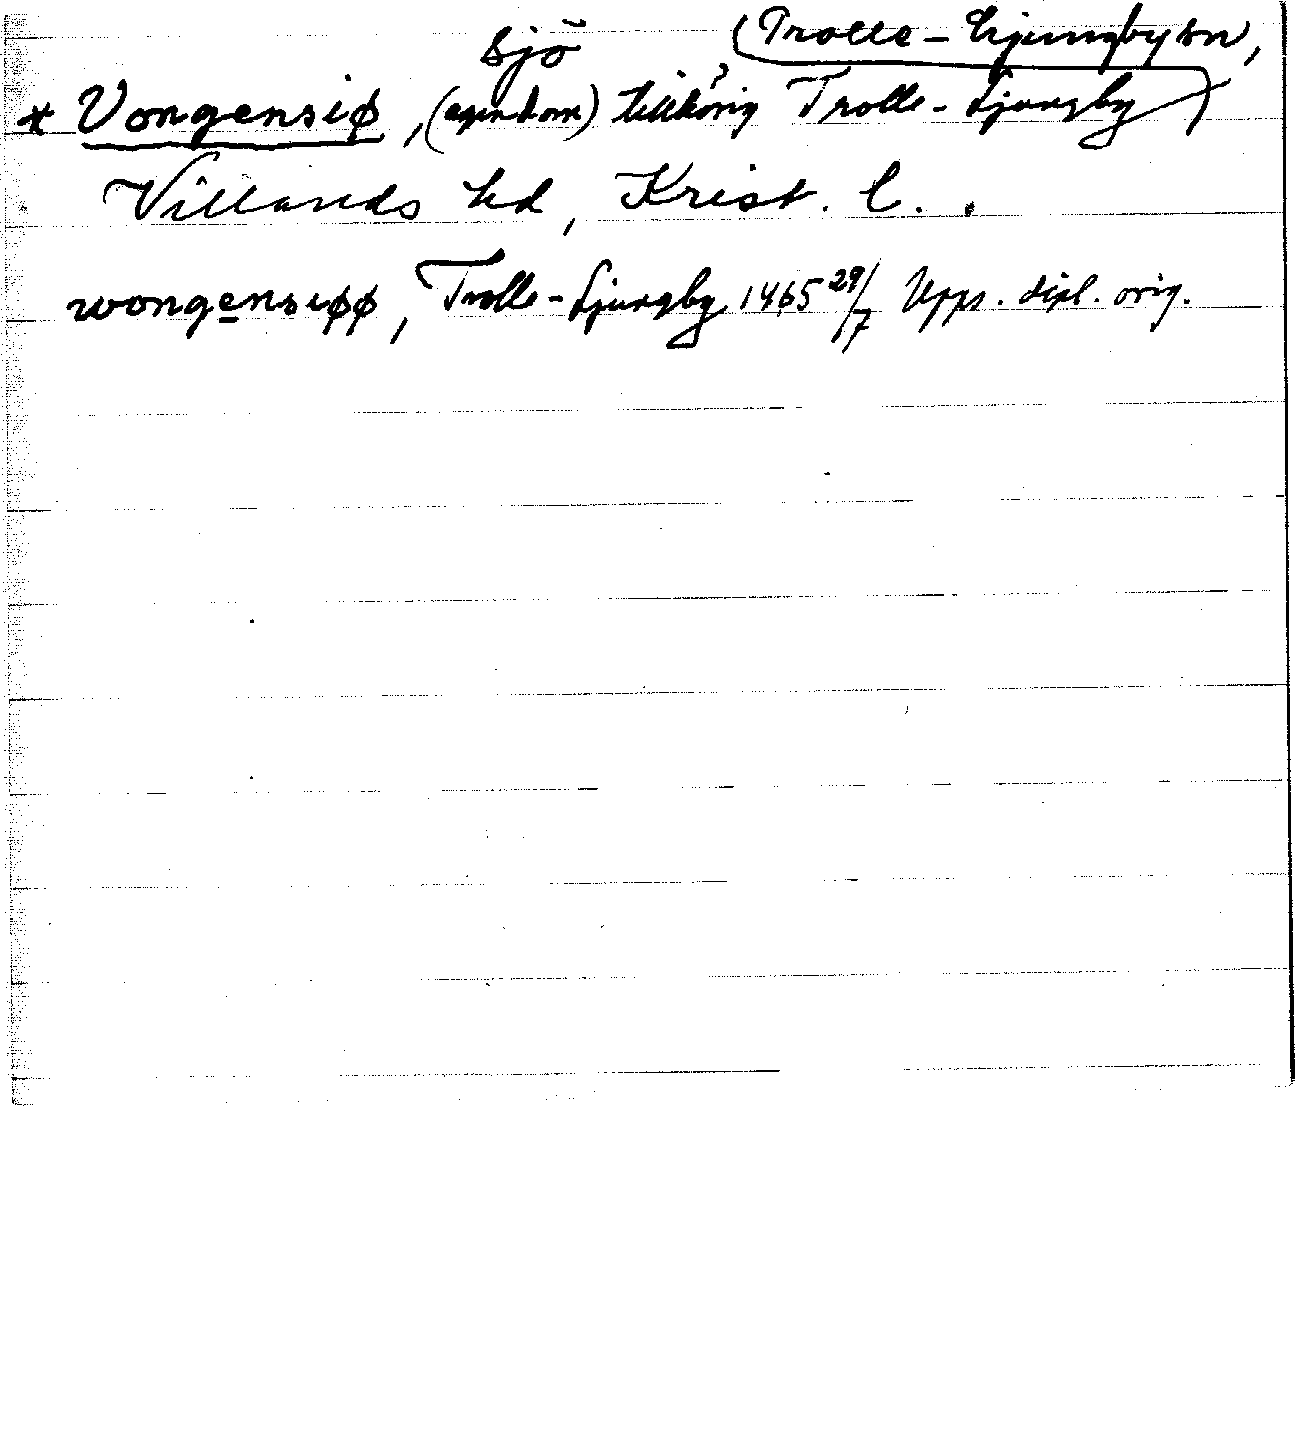 sjö (Trolle-Ljungby sn,
* Vongensiø, (egendom) tillhörig? Trolle-Ljungby)
Villands hd, Krist. l.
wongensiøø, Trolle-Ljungby 1465 29/7 Upps. dipl. orig.